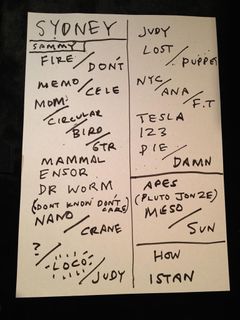 SYDNEY
SAMMY
FIRE / DON'T
MEMO / CELE
MDM / CIRCULAR
BIRD / GTR
MAMMAL
ENSOR
DR WORM
(DONT KNOW DON'T CARE)
NANO / CRANE
? / LOCO / JUDY
JUDY
LOST / PUPPET
NYC / ANA / F.T
TESLA
123
PIE / DAMN
APES
(PLUTO JONZE)
MESO / SUN
HOW
ISTAN